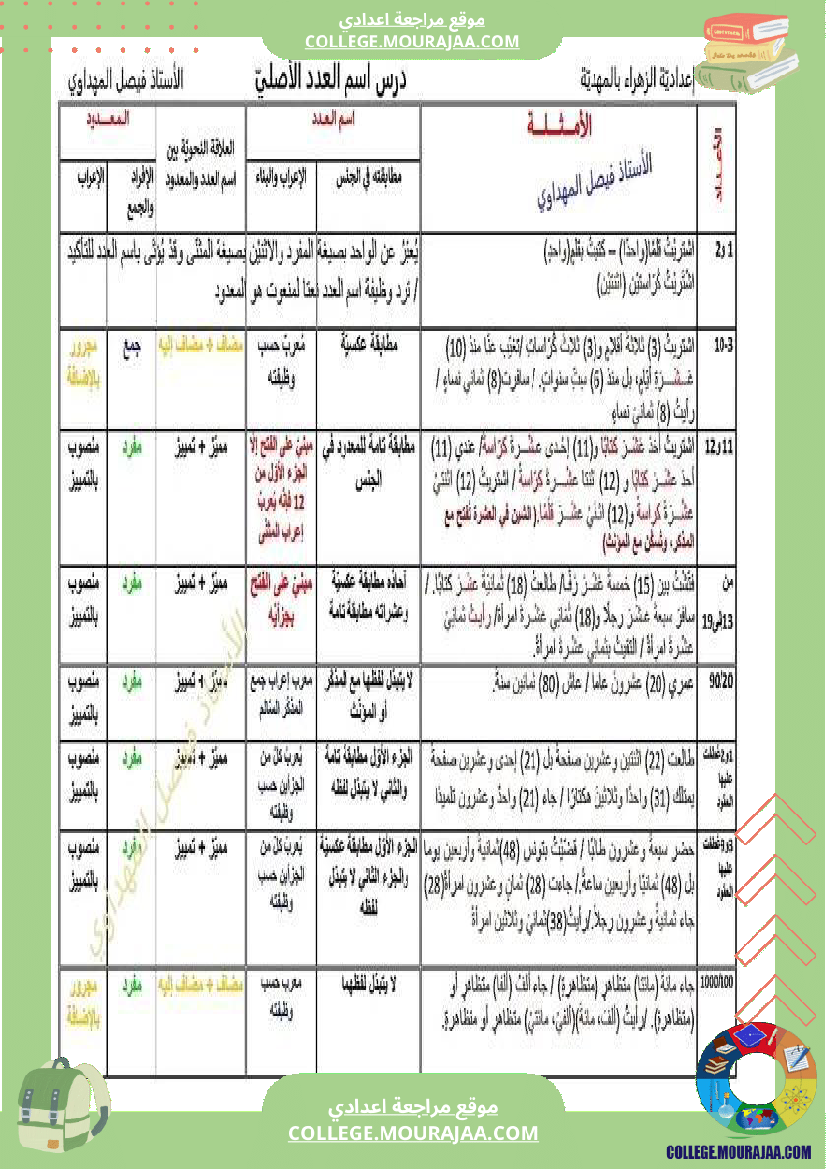 موقع مراجعة اعدادي
COLLEGE.MOURAJAA.COM
إعداديّة الزهراء بالمهديّة
درس اسم العدد الأصليّ
الأستاذ فيصل المهداوي
الأعداد
الأمثلة
الأستاذ فيصل المهداوي
اسم العدد
مطابقته في الجنس
الإعراب والبناء
العلاقة النحويّة بين
اسم العدد والمعدود
المعدود
الإفراد
والجمع
الإعراب
1 و2
اشتريتُ قلمًا(واحدًا) – كتبتُ بقلمٍ(واحدٍ)
اشتريْتُ كرّاستيْن (اثنتيْن)
يُعبّرُ عن الواحد بصيغة المفرد والاثنيْن بصيغة المثنّى وقدْ يُؤتى باسم العدد للتأكيد
/ ترد وظيفة اسم العدد نعتا لمنعوت هو المعدود
10-3
اشتريتُ (3) ثلاثةَ أقلامٍ و(3) ثلاثَ كُرّاساتٍ /تغيّب عنّا منذُ (10)
عَشَرَةِ أيّامٍ، بل منذُ (6) ستِّ سنواتٍ. / سافرت(8) ثماني نساءٍ /
رأيتُ (8) ثمانيَ نساءٍ
مطابقة عكسيّة
مُعربٌ حسب
وظيفته
مضاف + مضاف إليه
جمع
مجرور
بالإضافة
11 و12
اشتريتُ أحدَ عَشَرَ كتابًا و(11) إحْدى عشْرةَ كرّاسةً/ عندي (11)
أحدَ عشَرَ كتابًا و (12) ثنتا عشْرةَ كرّاسةً / اشتريتُ (12) اثنتيْ
عشْرَةَ كراسةً و(12) اثنيْ عشَرَ قلمًا.( الشين في العشرة تفتح مع
المذكر، وتسكّن مع المؤنث)
مطابقة تامة للمعدود في
الجنس
مبنيّ على الفتح إلّا
الجزء الأوّل من
12 فإنّه يُعربُ
إعراب المثنّى
مميّز + تمييز
مفرد
منصوب
بالتمييز
من
13إلى19
فتّشْتُ بين (15) خمسةَ عَشَرَ رفًّا/ طالعتُ (18) ثمانيةَ عشَرَ كتابًا. /
سافرَ سبعةَ عشَرَ رجلًا و(18) ثماني عشْرةَ امرأة/ رأيتُ ثمانيَ
عشْرةَ امرأةً / التقيتُ بثماني عشْرةَ امرأةً.
آحاده مطابقة عكسيّة
وعشراته مطابقة تامّة
مبنيّ على الفتح
بجزأيْه
مميّز + تمييز
مفرد
منصوب
بالتمييز
90/20
عمري (20) عشرونَ عاما / عاش (80) ثمانين سنةً.
لا يتبدّل لفظها مع المذكّر
أو المؤنّث
معرب إعراب جمع
المذكّر السّالم
مميّز + تمييز
مفرد
منصوب
بالتمييز
1و2عطفت
عليها
العقود
طالعت (22) اثنتين وعشرين صفحةً بل (21) إحدى وعشرين صفحةً
يملك (31) واحدًا وثلاثينَ هكتارًا / جاء (21) واحدٌ وعشرون تلميذًا
الجزء الأوّل مطابقةً تامّة
والثاني لا يتبدّل لفظه
يُعربُ كلّ من
الجزأين حسب
وظيفته
مميّز + تمييز
مفرد
منصوب
بالتمييز
3و9عطفت
عليها
العقود
حضر سبعةٌ وعشرون طالبًا / قضيْتُ بتونس (48)ثمانيةً وأربعين يوما
بل (48) ثمانيًا وأربعين ساعةً./ جاءت (28) ثمانٍ وعشرون امرأةً(28)
جاء ثمانيةٌ وعشرون رجلًا./رأيتُ(38)ثمانيَ وثلاثين امرأةً
الجزء الأوّل مطابقة عكسيّة
والجزء الثاني لا يتبدّل
لفظه
يُعربُ كلّ من
الجزأين حسب
وظيفته
مميّز + تمييز
مفرد
منصوب
بالتمييز
1000/100
جاء مائة (مائتا) متظاهرٍ (متظاهرةٍ) / جاء ألفُ (ألفا) متظاهرٍ أو
(متظاهرةٍ). /رأيتُ (ألفَ، مائةَ)(ألفيْ، مائتيْ) متظاهرٍ أو متظاهرةٍ.
لا يتبدّل لفظهما
معرب حسب
وظيفته
مضاف + مضاف إليه
مفرد
مجرور
بالإضافة
الأستاذ فيصل المهداوي
موقع مراجعة اعدادي
COLLEGE.MOURAJAA.COM
COLLEGE.MOURAJAA.COM